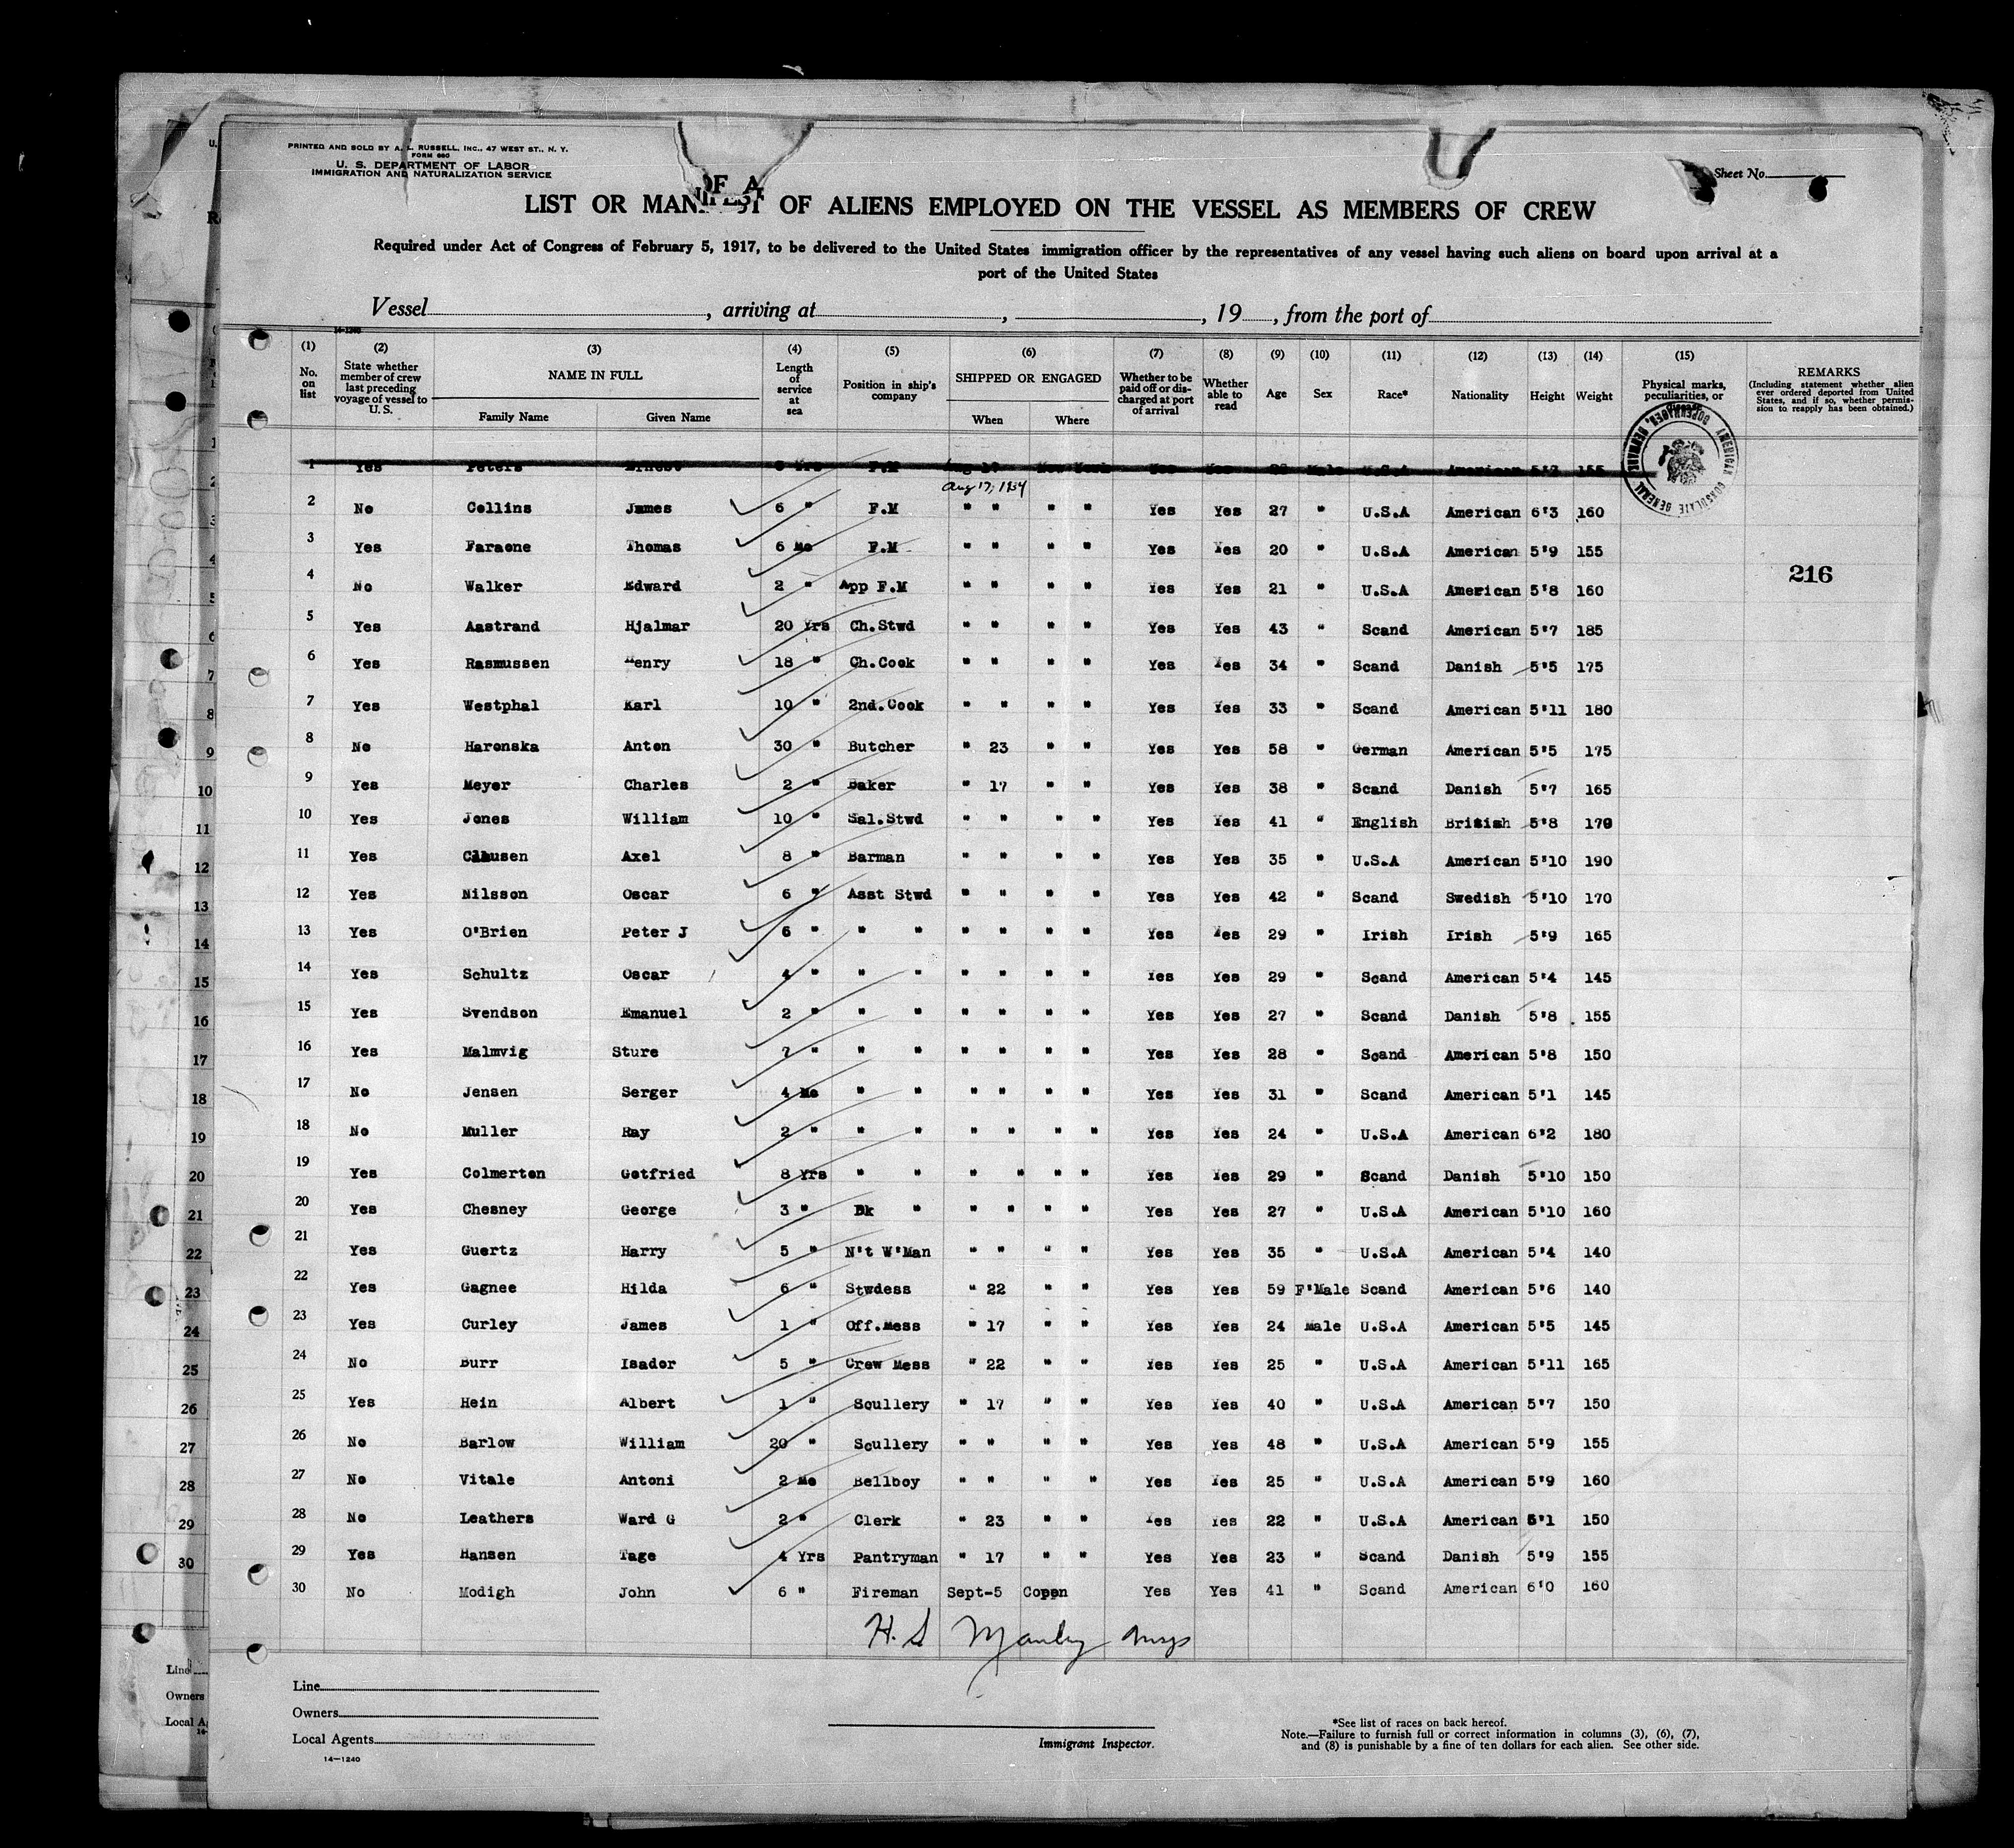 PRINTED AND SOLD BY A. L. RUSSELL, INC., 47 WEST ST., N. Y.
FORM 680
U. S. DEPARTMENT OF LABOR
IMMIGRATION AND NATURALIZATION SERVICE
Sheet No.
OF A
LIST OR MANIFEST OF ALIENS EMPLOYED ON THE VESSEL AS MEMBERS OF CREW
Required under Act of Congress of February 5, 1917, to be delivered to the United States immigration officer by the representatives of any vessel having such aliens on board upon arrival at a
port of the United States
Vessel , arriving at , , 19 , from the port of
14-1240
(1) No. on list (2) State whether member of crew last preceding voyage of vessel to U. S. (3) NAME IN FULL Family Name Given Name (4) Length of service at sea (5) Position in ship's company (6) SHIPPED OR ENGAGED When Where (7) Whether to be paid off or discharged at port of arrival (8) Whether able to read (9) Age (10) Sex (11) Race* (12) Nationality (13) Height (14) Weight (15) Physical marks, peculiarities, or REMARKS (Including statement whether alien ever ordered deported from United States, and if so, whether permission to reapply has been obtained.)
AMERICAN CONSULATE GENERAL COPENHAGEN, DENMARK
1 Yes Peters Ernest Yrs F.M Aug 17 New York Yes Yes Male U.S.A American 155
Aug 17, 1934
2 No Collins James 6 " F.M " " " " Yes Yes 27 " U.S.A American 6'3 160
3 Yes Faraone Thomas 6 Mo F.M " " " " Yes Yes 20 " U.S.A American 5'9 155
4 No Walker Edward 2 " App F.M " " " " Yes Yes 21 " U.S.A American 5'8 160
216
5 Yes Aastrand Hjalmar 20 Yrs Ch.Stwd " " " " Yes Yes 43 " Scand American 5'7 185
6 Yes Rasmussen Henry 18 " Ch.Cook " " " " Yes Yes 34 " Scand Danish 5'5 175
7 Yes Westphal Karl 10 " 2nd.Cook " " " " Yes Yes 33 " Scand American 5'11 180
8 No Haronska Anton 30 " Butcher " 23 " " Yes Yes 58 " German American 5'5 175
9 Yes Meyer Charles 2 " Baker " 17 " " Yes Yes 38 " Scand Danish 5'7 165
10 Yes Jones William 10 " Sal.Stwd " " " " Yes Yes 41 " English British 5'8 170
11 Yes Clausen Axel 8 " Barman " " " " Yes Yes 35 " U.S.A American 5'10 190
12 Yes Nilsson Oscar 6 " Asst Stwd " " " " Yes Yes 42 " Scand Swedish 5'10 170
13 Yes O'Brien Peter J 6 " " " " " " " Yes Yes 29 " Irish Irish 5'9 165
14 Yes Schultz Oscar 4 " " " " " " " Yes Yes 29 " Scand American 5'4 145
15 Yes Svendson Emanuel 2 " " " " " " " Yes Yes 27 " Scand Danish 5'8 155
16 Yes Malmvig Sture 7 " " " " " " " Yes Yes 28 " Scand American 5'8 150
17 No Jensen Serger 4 Mo " " " " " " Yes Yes 31 " Scand American 5'1 145
18 No Muller Ray 2 " " " " " " " Yes Yes 24 " U.S.A American 6'2 180
19 Yes Colmerton Gotfried 8 Yrs " " " " " " Yes Yes 29 " Scand Danish 5'10 150
20 Yes Chesney George 3 " Bk " " " " " Yes Yes 27 " U.S.A American 5'10 160
21 Yes Guertz Harry 5 " N't W'Man " " " " Yes Yes 35 " U.S.A American 5'4 140
22 Yes Gagnee Hilda 6 " Stwdess " 22 " " Yes Yes 59 F'Male Scand American 5'6 140
23 Yes Curley James 1 " Off.Mess " 17 " " Yes Yes 24 Male U.S.A American 5'5 145
24 No Burr Isador 5 " Crew Mess " 22 " " Yes Yes 25 " U.S.A American 5'11 165
25 Yes Hein Albert 1 " Scullery " 17 " " Yes Yes 40 " U.S.A American 5'7 150
26 No Barlow William 20 " Scullery " " " " Yes Yes 48 " U.S.A American 5'9 155
27 No Vitale Antoni 2 Mo Bellboy " " " " Yes Yes 25 " U.S.A American 5'9 160
28 No Leathers Ward G 2 " Clerk " 23 " " Yes Yes 22 " U.S.A American 5'1 150
29 Yes Hansen Tage 4 Yrs Pantryman " 17 " " Yes Yes 23 " Scand Danish 5'9 155
30 No Modigh John 6 " Fireman Sept-5 Copen Yes Yes 41 " Scand American 6'0 160
H. S Manley
Line
Owners
Local Agents
14-1240
Immigrant Inspector.
*See list of races on back hereof.
Note.—Failure to furnish full or correct information in columns (3), (6), (7),
and (8) is punishable by a fine of ten dollars for each alien. See other side.